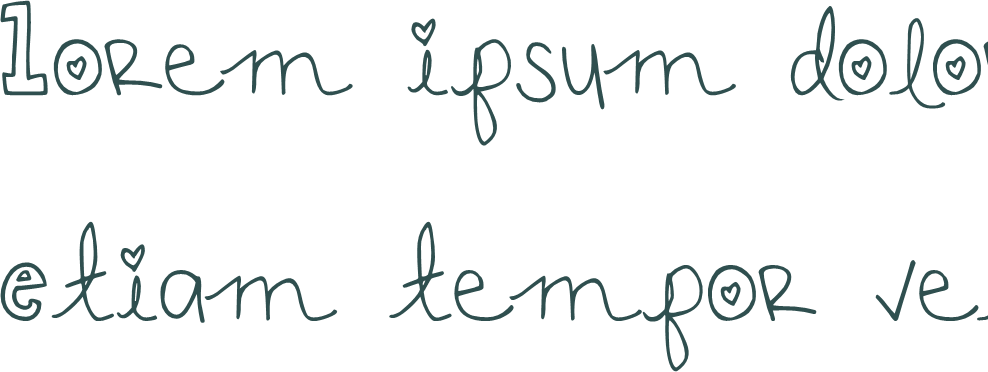 lorem ipsum dolo
etiam tempor ve